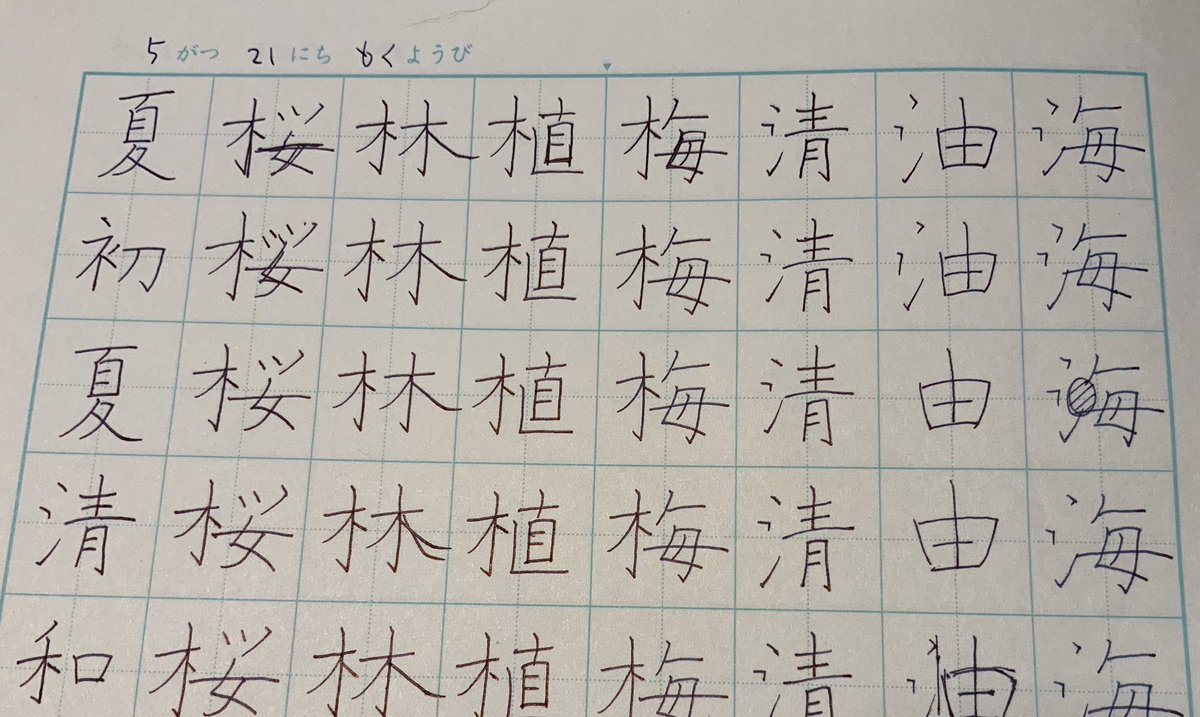 5がつ 21にち もくようび
夏桜林植梅清油海
初桜林植梅清油海
夏桜林植梅清由海
清桜林植梅清由海
和桜林植梅清油海